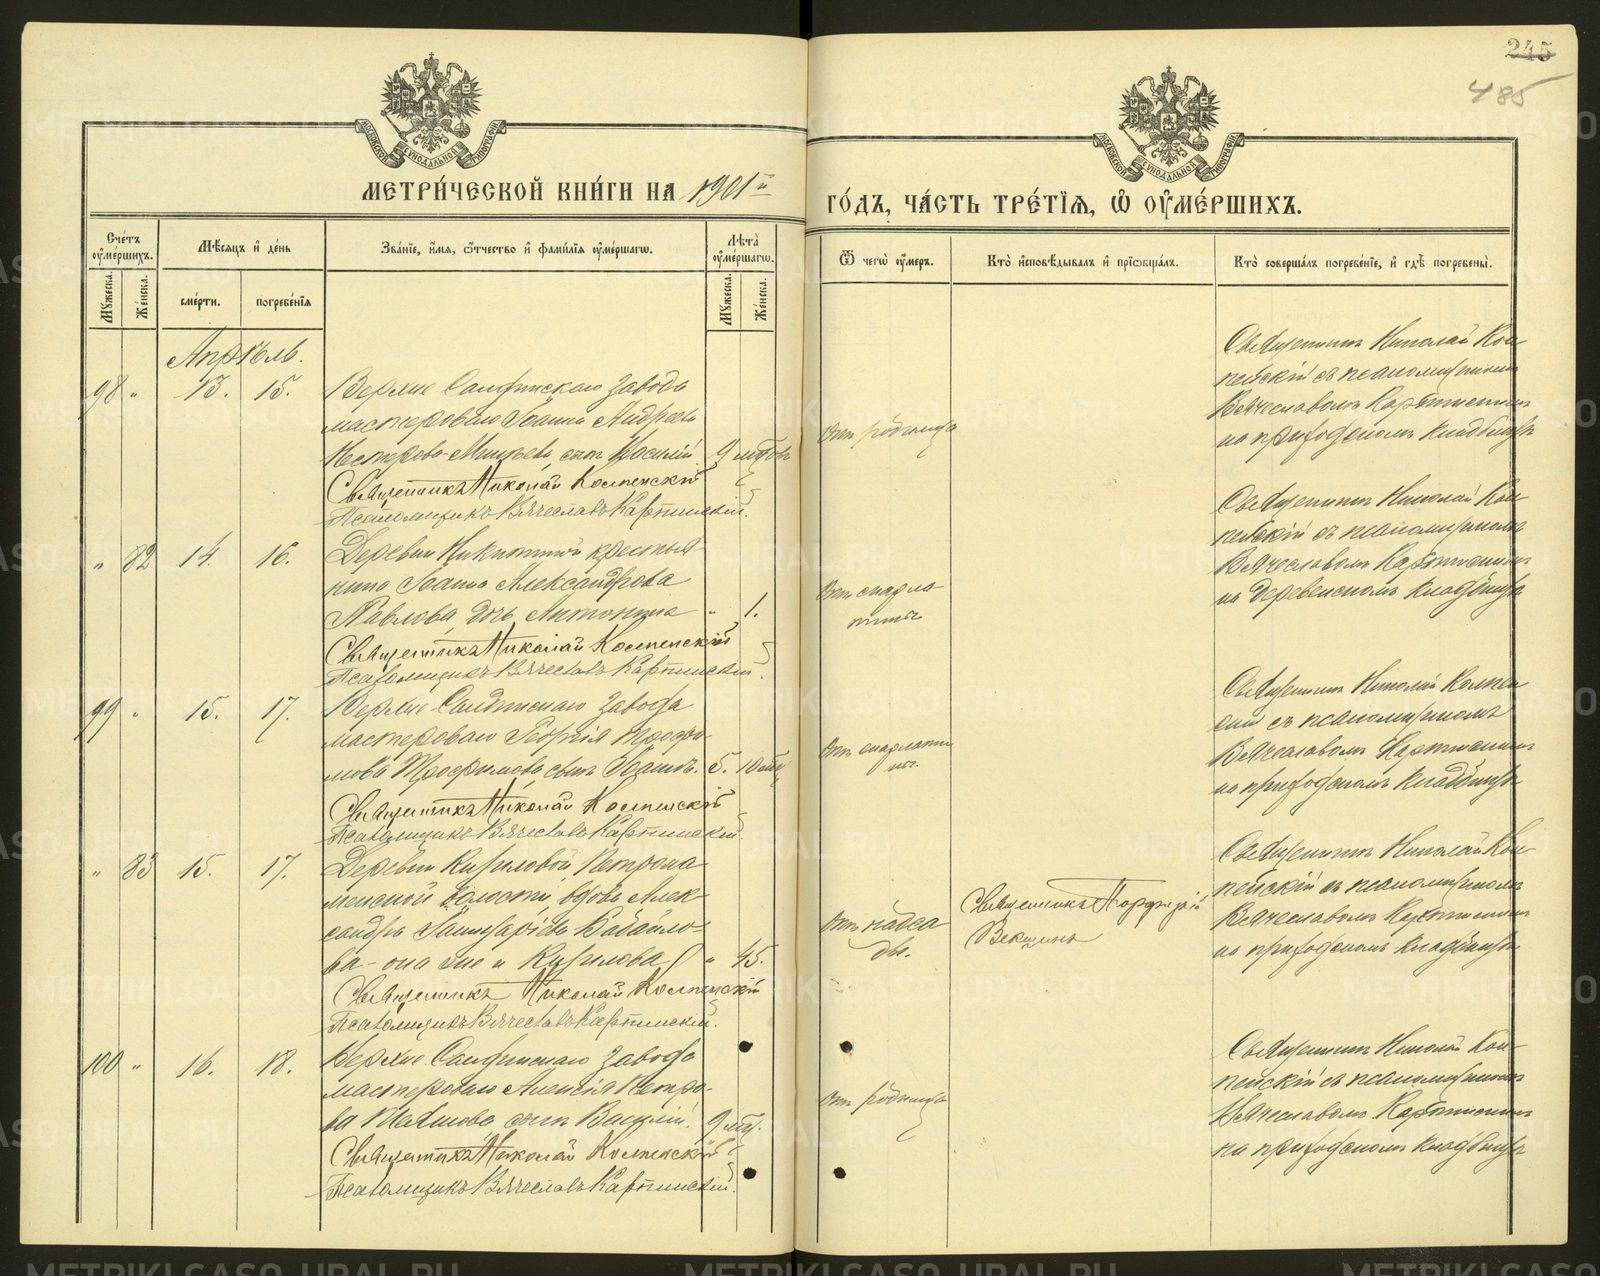 245
485
МЕТРИ́ЧЕСКОЙ КНИ́ГИ НА 1901й
ГО́ДЪ, ЧА́СТЬ ТРЕ́ТІѦ, Ѿ ОУМЕ́РШИХЪ.
Сче́тъ оуме́ршихъ.
Мѣ́сѧцъ и де́нь
Зва́ніе, и́мѧ, ѻ́тчество и фами́лїѧ оуме́ршагѡ.
Лѣ́та оуме́ршагѡ.
Ѿ чегѡ̀ оу́меръ.
Кто̀ исповѣ́дывалъ и прїѡбща́лъ.
Кто̀ соверша́лъ погребе́нїе, и гдѣ̀ погребены̀.
Мꙋ́жеска.
Же́нска.
сме́рти.
погребе́нїѧ
Мꙋ́жеска.
Же́нска.
Апрѣль.
98 " 13. 15. Верхне Салдинскаго завода
мастероваго Іоанна Андреева
сынъ Василій 9 мѣсяц
Священникъ Николай Колпенскій
Псаломщикъ Вячеславъ Карпинскій.
Отъ родимца
Священникъ Николай Кол-
пенскій съ псаломщикомъ
Вячеславомъ Карпинскимъ
на приходскомъ кладбищѣ
" 82 14. 16. Деревни Никитиной крестья-
нина Іоанна Александрова
Павлова дочь Антонина " 1.
Священникъ Николай Колпенскій
Псаломщикъ Вячеславъ Карпинскій.
Отъ скарла-
тины
Священникъ Николай Кол-
пенскій съ псаломщикомъ
Вячеславомъ Карпинскимъ
на деревенскомъ кладбищѣ
99 " 15. 17. Верхне Салдинскаго завода
мастероваго Георгія Трофи-
мова Трофимова сынъ Іоаннъ. 5. 10 мѣс
Священникъ Николай Колпенскій
Псаломщикъ Вячеславъ Карпинскій.
Отъ скарлати-
ны.
Священникъ Николай Колпен-
скій съ псаломщикомъ
Вячеславомъ Карпинскимъ
на приходскомъ кладбищѣ
" 83 15. 17. Деревни Кириловой Петрока-
менской волости, вдова Алек-
сандра
ва - она же и Кирилова " 45.
Священникъ Николай Колпенскій
Псаломщикъ Вячеславъ Карпинскій.
Отъ надса-
ды.
Священникъ Порфирій
Векшинъ
Священникъ Николай Кол-
пенскій съ псаломщикомъ
Вячеславомъ Карпинскимъ
на приходскомъ кладбищѣ
100 " 16. 18. Верхне Салдинскаго завода
мастероваго Алексія Петро-
ва сынъ Василій. 9 мѣс.
Священникъ Николай Колпенскій
Псаломщикъ Вячеславъ Карпинскій.
Отъ родимца
Священникъ Николай Кол-
пенскій съ псаломщикомъ
Вячеславомъ Карпинскимъ
на приходскомъ кладбищѣ
METRIKI.GASO-URAL.RU